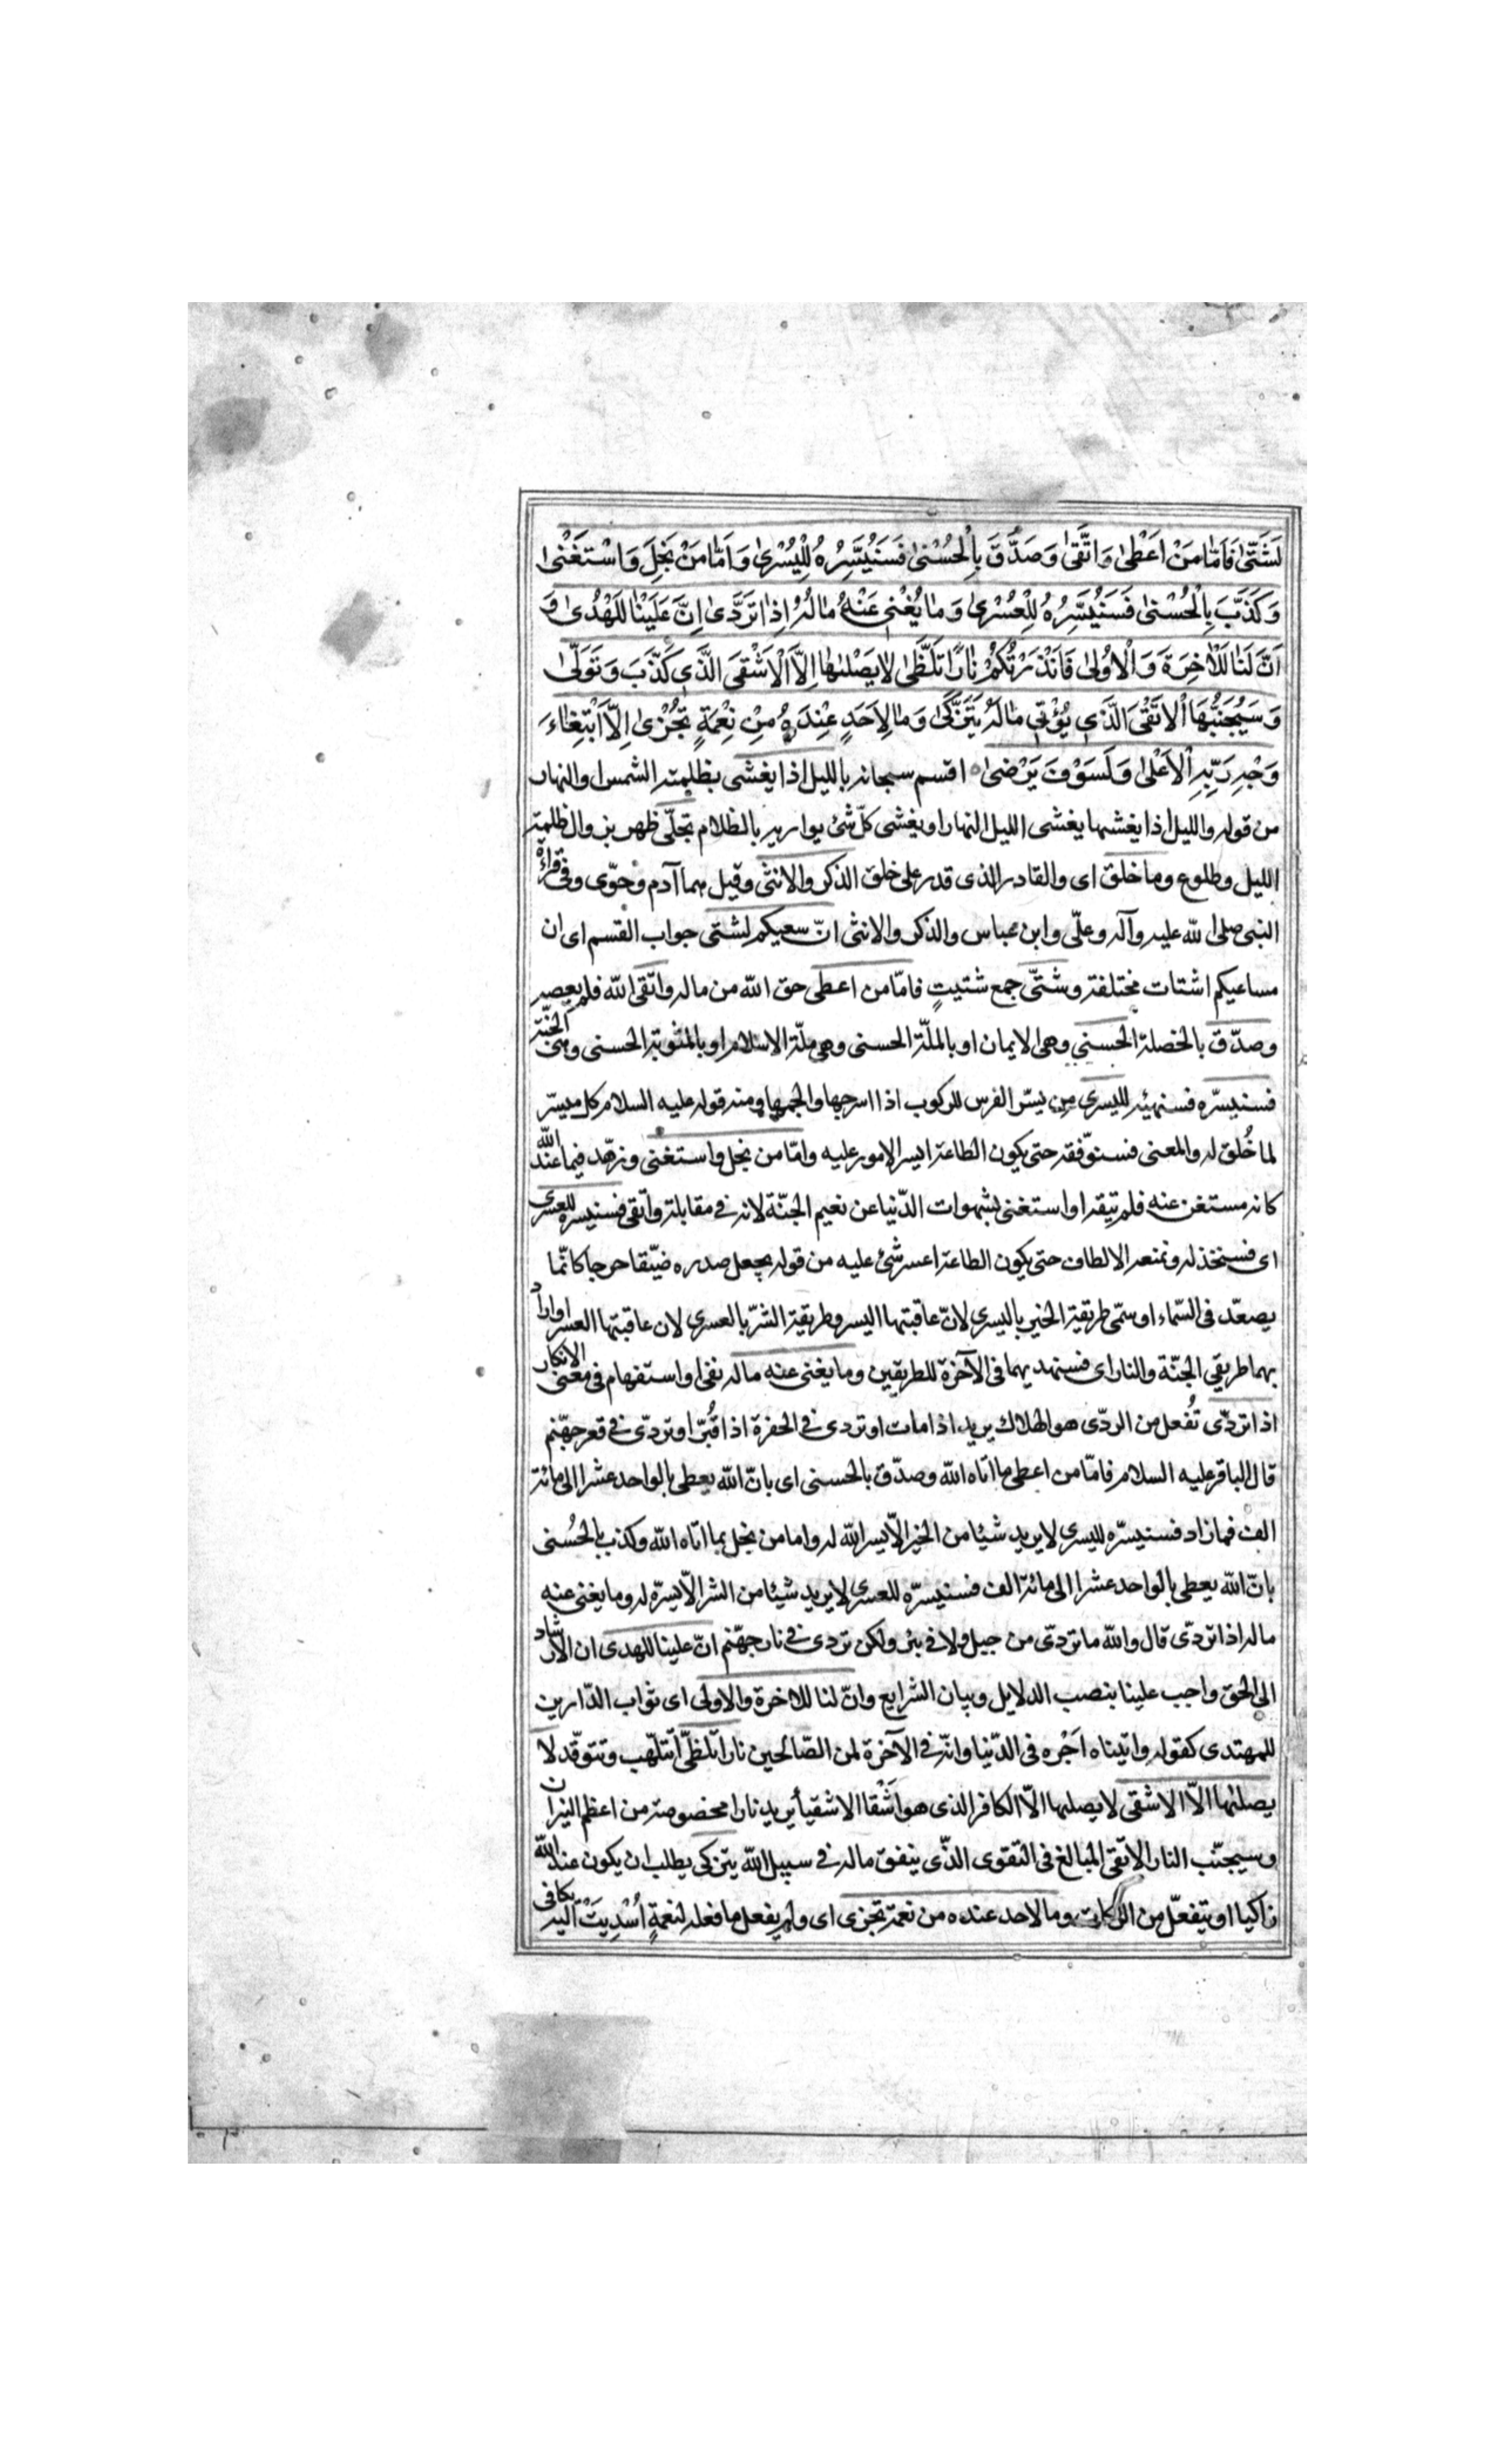 لَشَتّىٰ فَاَمّٰا مَنْ اَعْطىٰ وَاتَّقىٰ وَصَدَّقَ بِالْحُسْنىٰ فَسَنُيَسِّرُهُ لِلْيُسْرىٰ وَاَمّٰا مَنْ بَخِلَ وَاسْتَغْنىٰ
وَكَذَّبَ بِالْحُسْنىٰ فَسَنُيَسِّرُهُ لِلْعُسْرىٰ وَمٰا يُغْنىٖ عَنْهُ مٰالُهُ اِذٰا تَرَدّىٰ اِنَّ عَلَيْنٰا لَلْهُدىٰ وَ
اِنَّ لَنٰا لَلْاٰخِرَةَ وَالْاُولىٰ فَاَنْذَرْتُكُمْ نٰارًا تَلَظّىٰ لٰا يَصْلىٰهٰا اِلَّا الْاَشْقَى الَّذىٖ كَذَّبَ وَتَوَلّىٰ
وَسَيُجَنَّبُهَا الْاَتْقَى الَّذىٖ يُؤْتىٖ مٰالَهُ يَتَزَكّىٰ وَمٰا لِاَحَدٍ عِنْدَهُ مِنْ نِعْمَةٍ تُجْزىٰ اِلَّا ابْتِغٰاءَ
وَجْهِ رَبِّهِ الْاَعْلىٰ وَلَسَوْفَ يَرْضىٰ اقسم سبحانه بالليل اذا يغشى بظلمته الشمس او النهار
من قوله والليل اذا يغشيها يغشى الليل النهار او يغشى كلّ شئ يواريه بالظلام تجلّى ظهر بزوال ظلمة
الليل وطلوع وما خلق اى والقادر الذى قدر على خلق الذكر والانثى وقيل هما آدم وحوّى وفى قراءة
النبى صلى الله عليه وآله وعلّى وابن عباس والذكر والانثى انّ سعيكم لشتى جواب القسم اى ان
مساعيكم اشتات مختلفة وشتّى جمع شتيتٍ فامّا من اعطى حق الله من ماله واتّقى الله فلم يعصه
وصدّق بالخصلة الحسنى وهى الايمان او بالملّة الحسنى وهى ملّة الاسلام او بالمثوبة الحسنى وهى الجنّة
فسنيسّره فسنهيّئه لليسرى من يسّر الفرس للركوب اذا اسرجها والجمها ومنه قوله عليه السلام كل ميسّر
لما خُلق له والمعنى فسنوّفقه حتى يكون الطاعة ايسر الامور عليه وامّا من بخل واستغنى وزهد فيما عند الله
كانه مستغن عنه فلم يتّقه او استغنى بشهوات الدّنيا عن نعيم الجنّة لانه فى مقابلة واتّقى فسنيسره للعسرى
اى فسنخذله ونمنعه الالطاف حتى يكون الطاعة اعسر شئ عليه من قوله يجعل صدره ضيّقا حرجا كانّما
يصعّد فى السّماء او سمّى طريقة الخير باليسرى لانّ عاقبتها اليسر وطريقة الشرّ بالعسرى لان عاقبتها العسر او اراد
بهما طريقي الجنّة والنار اى فسنهديهما فى الآخرة للطريقين وما يغنى عنه ماله نفى او استفهام فى معنى الانكار
اذا تردّى تُفعل من الردّى هو الهلاك يريد اذا مات او تردى فى الحفرة اذا قُبّر او تردّى فى قعر جهّنم
قال الباقر عليه السلام فامّا من اعطى ما اتاه الله وصدّق بالحسنى اى بانّ الله يعطى بالواحد عشرا الى مائة
الف فما زاد فسنيسّره لليسرى لا يريد شيئا من الخير الّا يسر الله له واما من بخل بما اتاه الله وكذب بالحُسنى
بانّ الله يعطى بالواحد عشرا الى مائة الف فسنيسرّه للعسرى لا يريد شيئا من الشر الّا يسرّه له وما يغنى عنه
ماله اذا تردّى قال والله ما تردّى من جبل ولا فى بئر ولكن تردى فى نار جهّنم انّ علينا للهدى ان الارشاد
الى الحق واجب علينا بنصب الدلايل وبيان الشرايع وانّ لنا للاخرة والاولى اى ثواب الدّارين
للمهتدى كقوله واتيناه اَجْره فى الدّنيا وانّه فى الآخرة لمن الصّالحين نارا تلظّى تتلهّب وتتوقّد لا
يصليٰها الّا الاشقى لا يصليها الّا الكافر الذى هو اَشْقا الاشقيأ يريد نارا مخصوصة من اعظم النيران
وسيجنّب النار الاتقى المبالغ فى التقوى الذّى ينفق ماله فى سبيل الله يتزكى يطلب ان يكون عند الله
زاكيا او يتفعّل من الزكات وما لاحد عنده من نعمة تجزى اى ولم يفعل ما فعله لنعمةٍ اُسْدِيَتْ اليه يكافى